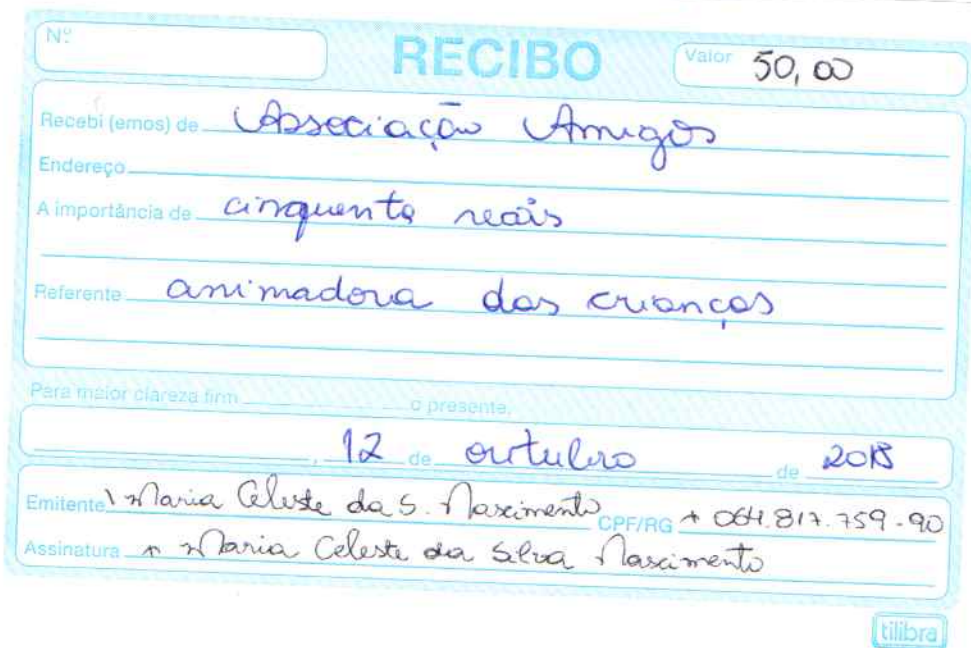 Nº
RECIBO
Valor 50,00
Recebi (emos) de Associação Amigos
Endereço
A importância de cinquenta reais
Referente animadora das crianças
Para maior clareza firm o presente.
, 12 de outubro de
Emitente Maria Celeste da S. Nascimento CPF/RG 064.817.759-90
Assinatura Maria Celeste da Silva Nascimento
tilibra